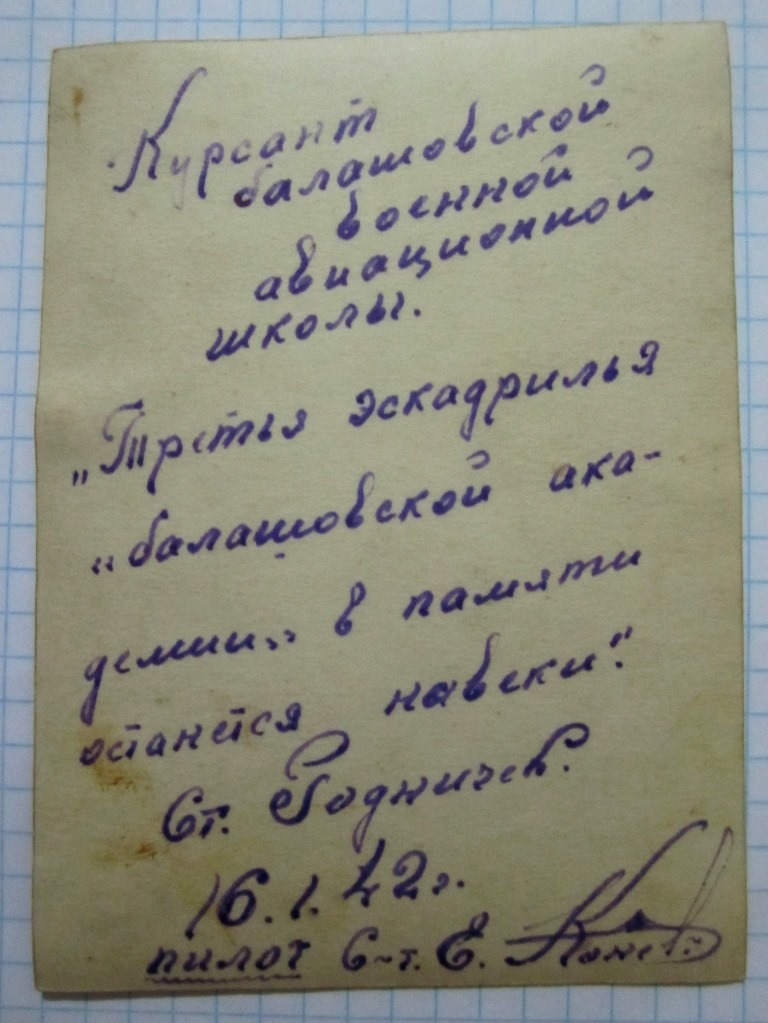 Курсант
балашовской
военной
авиационной
школы.
„Третья эскадрилья
„балашовской ака-
демии„ в памяти
останется навеки".
Ст.
16.1.42г.
пилот С-т. Е.